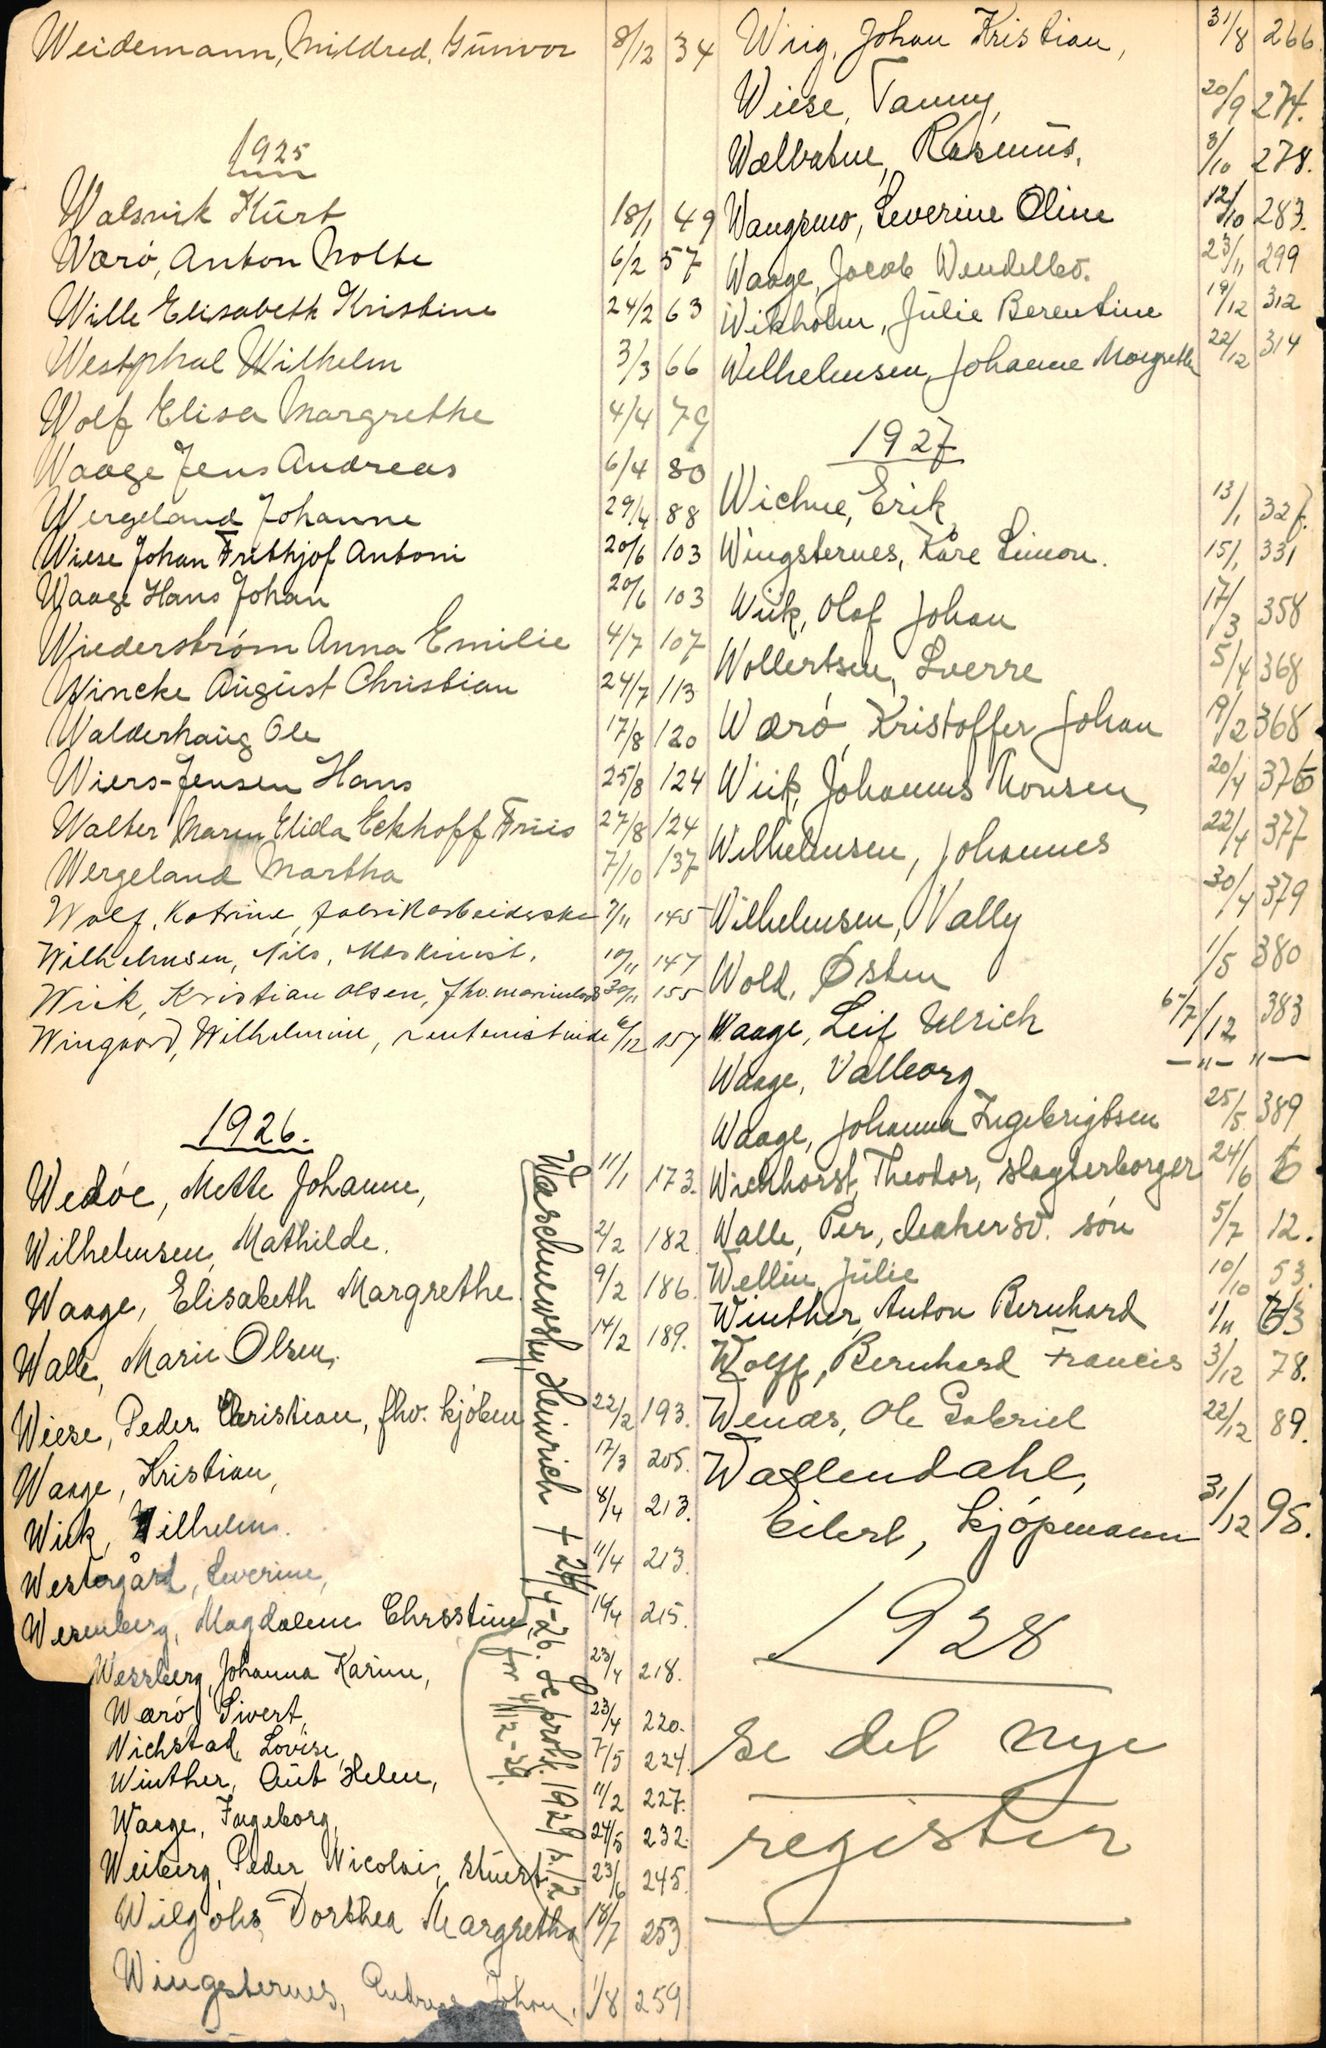 Weidemann, Mildred, Gunvor 8/12 34
1925
Walsvik Kurt 18/1 49
Værö, Anton Nolte 6/2 57
Wille Elisabeth Kristine 24/2 63
Westphal Wilhelm 3/3 66
Wolf Elisa Margrethe 4/4 79
Waage Jens Andreas 6/4 80
Wergeland Johanne 29/4 88
Wiese Johan Frithjof Antoni 20/6 103
Waage Hans Johan 20/6 103
Wiederstrøm Anna Emilie 4/7 107
Wincke August Christian 24/7 113
Walderhaug Ole 17/8 120
Wiers-Jensen Hans 25/8 124
Walter Maren Elida Eckhoff Friis 27/8 124
Wergeland Martha 7/10 137
Wolf, Katrine, fabrikarbeiderske 7/11 145
Wilhelmsen, Nils, Maskinist. 10/11 147
Wiik, Kristian Olsen, fhv. 30/11 155
Wingaard, Wilhelmine, rentenistinde 6/12 157
1926.
Wedöe, Mette Johanne, 11/1 173.
Wilhelmsen, Mathilde. 2/2 182
Waage, Elisabeth Margrethe 9/2 186.
Walle, Marie Olsen, 14/2 189.
Wiese, Peder Christian, fhv. kjöbm 22/2 193.
Waage, Kristian, 17/3 205.
Wiik, Wilhelm. 8/4 213.
Westergård, Severine, 11/4 213.
Werenberg, Magdalene Chrsstine, 14/4 215.
Wessberg, Johanna Karine, 23/4 218.
Wærö, Sivert, 23/4 220.
Wichstad, Lovise, 7/5 224.
Winther, Helene, 11/2 227.
Waage, Ingeborg, 24/5 232.
Weiberg, Peder Nicolai, stuert 23/6 245.
Wilgohs, Dorthea Margretha 18/7 253
Wingsternes, Andreas Johan, 1/8 259
Waschnewsky, Heinrich + 24/4-26. Se prot. 1929 s. 12
for 4/12-29.
Wiig, Johan Kristian, 31/8 266.
Wiese, Fanny, 20/9 274.
Wælvatne, Rasmus, 8/10 278.
Wangsmo, Severine Oline 12/10 283.
Waage, Jacob Wendelbo. 23/11 299
Wikholm, Julie Berentine 19/12 312
Wilhelmsen, Johanne Margrethe 22/12 314
1927
Wichne, Erik 13/1 327.
Wingsternes, Kåre Simon. 15/1 331
Wiik, Olaf Johan 17/3 358
Wollertsen, Sverre 5/4 368
Wærö, Kristoffer Johan 9/2 368
Wiik, Johannes Monsen, 20/4 376
Wilhelmsen, Johannes 22/4 377
Wilhelmsen, Vally 30/4 379
Wold, Østen 1/5 380
Waage, Leif Ulrich /12 383
Waage, Valborg —"— "—
Waage, Johanna Ingebrigtsen 25/5. 389
Wichhorst, Theodor, slagterborger 24/6 6
Walle, Per, sön 5/7 12.
Wellin, Julie 10/10 53.
Winther, Anton Bernhard 1/11 63
Wolff, Bernhard Francis 3/12 78.
Wenås, Ole Gabriel 22/12 89.
Wallendahl,
Eilert, kjöpmann 31/12 95.
1928
se det nye
register